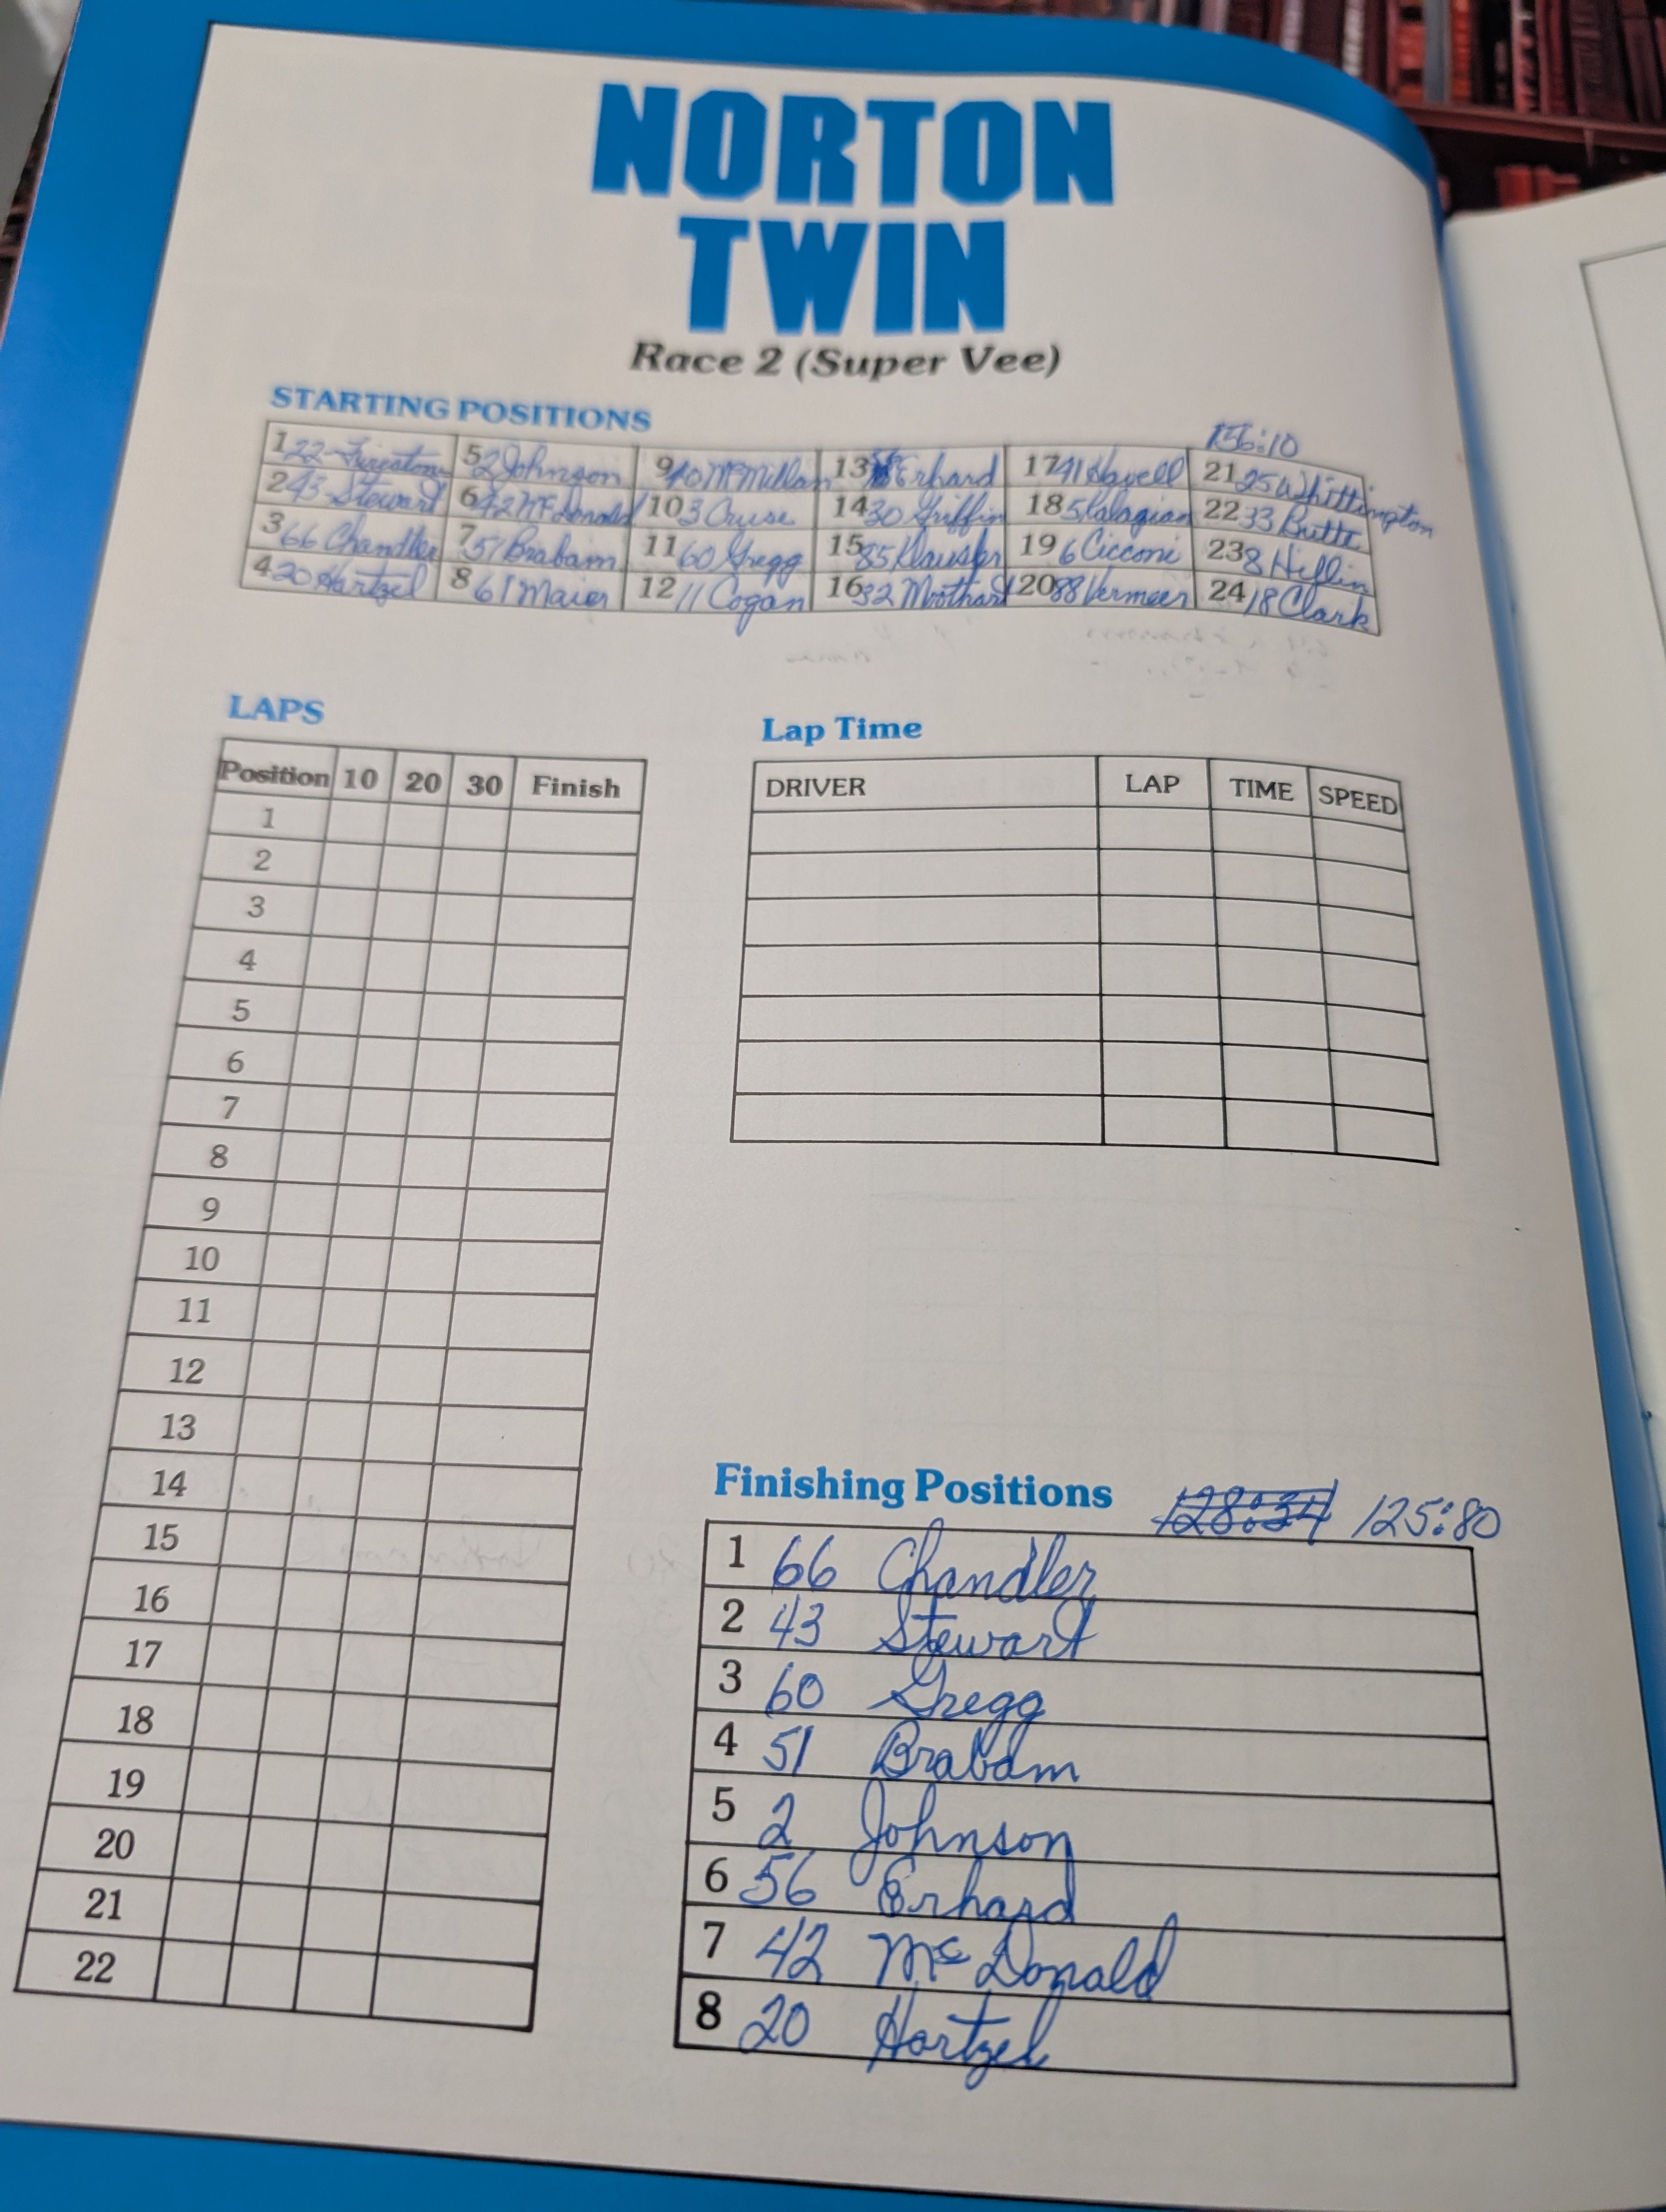 NORTON
TWIN
Race 2 (Super Vee)
STARTING POSITIONS
156:10
1 22 Firestone 5 2 Johnson 9 40 McMillan 13 56 Erhard 17 41 Hayell 21 25 Whittington
2 43 Stewart 6 42 McDonald 10 3 Cruse 14 30 Griffin 18 5 Kalagian 22 33 Butts
3 66 Chandler 7 51 Brabam 11 60 Gregg 15 85 Klausler 19 6 Cicconi 23 8 Heflin
4 20 Hartzel 8 61 Maier 12 11 Cogan 16 32 Moothart 20 88 Vermeer 24 18 Clark
LAPS
Position 10 20 30 Finish
1
2
3
4
5
6
7
8
9
10
11
12
13
14
15
16
17
18
19
20
21
22
Lap Time
DRIVER LAP TIME SPEED
Finishing Positions 128:34 125:80
1 66 Chandler
2 43 Stewart
3 60 Gregg
4 51 Brabam
5 2 Johnson
6 56 Erhard
7 42 McDonald
8 20 Hartzel